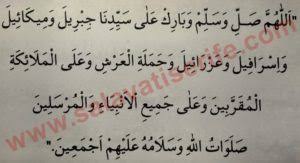 "اَللّٰهُمَّ صَلِّ وَسَلِّمْ وَبَارِكْ عَلٰى سَيِّدِنَا جِبْرِيلَ وَمِيكَائِيلَ
وَاِسْرَافِيلَ وَعَزْرَائِيلَ وَحَمَلَةِ الْعَرْشِ وَعَلَى الْمَلَائِكَةِ
الْمُقَرَّبِينَ وَعَلٰى جَمِيعِ الْاَنْبِيَاءِ وَالْمُرْسَلِينَ
صَلَوَاتُ اللهِ وَسَلَامُهُ عَلَيْهِمْ اَجْمَعِينَ."
www.salavatiserife.com